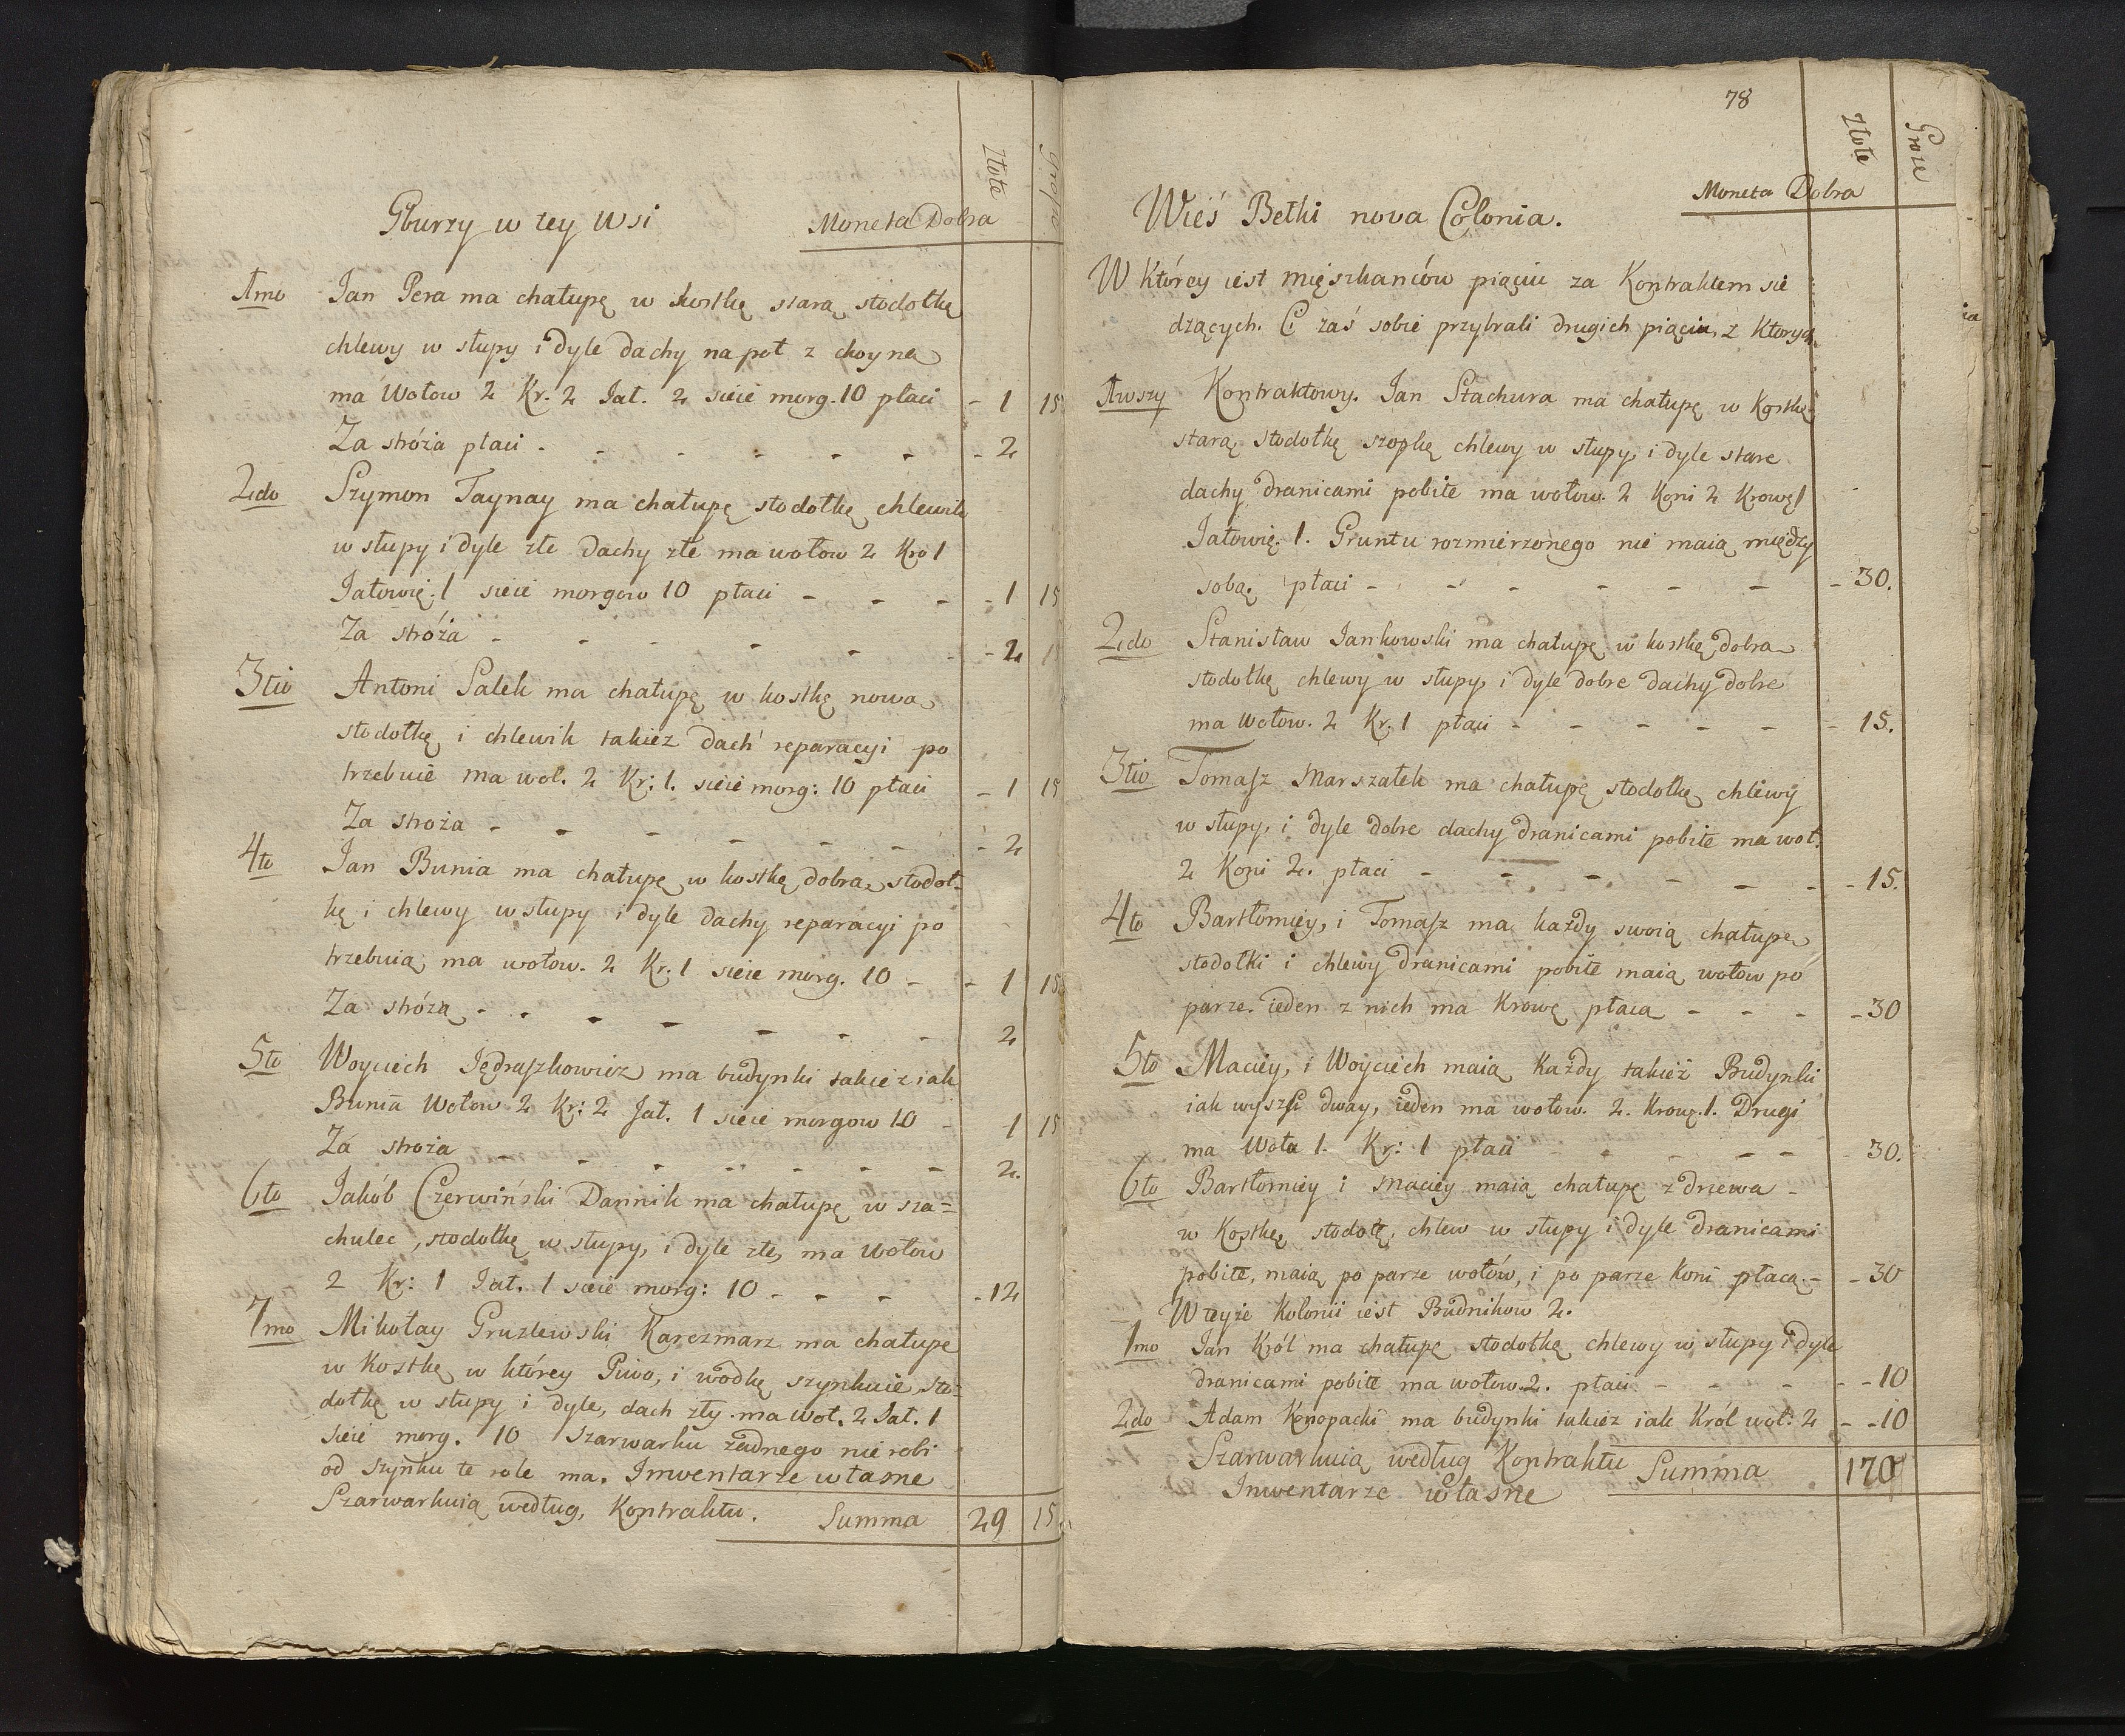 Złote Grosze
Gburzy w tey Wsi Moneta Dobra
1mo Jan Pera ma chałupę w kostkę starą, stodołkę
chlewy w słupy i dyle dachy na poł z choyną
ma Wołow 2 Kr. 2 Jał. 2 sieie morg. 10 płaci - 1 15
Za stróża płaci - 2
2do Szymon Taynay ma chałupę stodołkę chlewik
w słupy i dyle złe dachy złe ma wołow 2 Kro 1
Jałowię. 1 sieie morgow 10 płaci - 1 15
Za stróża - 2
3tio Antoni Salek ma chałupę w kostkę nową
stodołkę i chlewik takież dach reparacyi po
trzebuie ma woł. 2 Kr: 1. sieie morg: 10 płaci - 1 15
Za stroża - 2
4to Jan Bunia ma chałupę w kostkę dobrą, stodoł-
kę i chlewy w słupy i dyle dachy reparacyi po
trzebuią, ma wołow. 2 Kr. 1 sieie morg. 10 - 1 15
Za stróżą - 2
5to Woyciech Jędraszkowicz ma budynki takież iak
Bunia Wołow 2 Kr: 2 Jał. 1 sieie morgow 10 - 1 15
Za stroża - 2.
6to Jakób Czerwiński Dannik ma chałupę w sza=
chulec, stodołkę w słupy, i dyle złe, ma Wołow
2 Kr: 1 Jał. 1 sieie morg: 10 - 12
7mo Mikołay Gruzlewski Karczmarz ma chałupę
w Kostkę w którey Piwo, i wodkę szynkuie, sto=
dołkę w słupy i dyle, dach zły ma Woł. 2 Jał. 1
sieie morg. 10 Szarwarku żadnego nie robi
od szynku te role ma. Inwentarze własne
Szarwarkuią według, Kontraktu. Summa 29 15.
78
Złote Grosze
Moneta Dobra
Wieś Bełki nova Colonia.
W Którey iest Mięszkanców pięciu za Kontraktem sie
dzących. Ci zaś sobie przybrali drugich pięciu, z Ktorych
1wszy Kontraktowy. Jan Stachura ma chałupę w Kostkę
starą, stodołkę szopkę chlewy w słupy, i dyle stare
dachy dranicami pobite ma wołow. 2 Koni 2 Krowę 1
Jałowię. 1. Gruntu rozmierzonego nie maią między
sobą płaci - 30.
2do Stanisław Jankowski ma chałupę w kostkę dobrą
stodołkę chlewy w słupy, i dyle dobre dachy dobre
ma Wołow. 2 Kr. 1 płaci - 15.
3tio Tomasz Marszałek ma chałupę stodołkę chlewy
w słupy, i dyle dobre dachy dranicami pobite ma woł.
2 Koni 2. płaci - 15.
4to Bartłomiey, i Tomasz ma każdy swoią chałupę
stodołki i chlewy dranicami pobite maią wołow po
parze. ieden z nich ma Krowę płacą - 30
5to Maciey, i Woyciech maią Każdy takież Budynki
iak wyszśi dway, ieden ma wołow. 2. Krowę. 1. Drugi
ma Woła 1. Kr: 1 płaci - 30.
6to Bartłomiey i Maciey maią chałupę z drzewa -
w Kostkę, stodołę, chlew w słupy i dyle dranicami
pobite, maią po parze wołów, i po parze koni płacą - 30
W teyże Kolonii iest Budnikow 2.
1mo Jan Król ma chałupę stodołkę chlewy w słupy i dyle
dranicami pobite ma wołow. 2. płaci - 10
2do Adam Konopacki ma budynki takież iak Król woł: 2 - 10
Szarwarkuią według Kontraktu Summa 170
Inwentarze własne